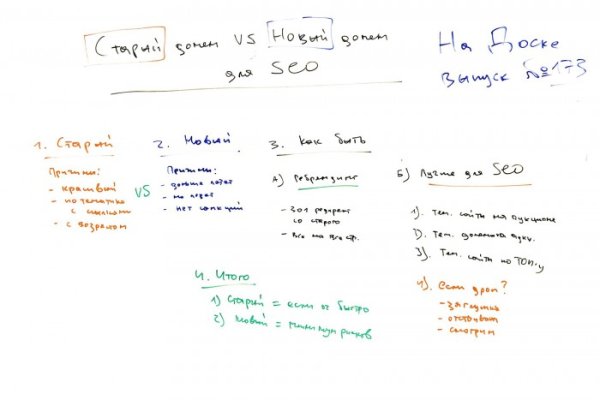 Старый домен VS Новый домен
для SEO
На Доске
выпуск №173
1. Старый
Причины:
- красивый
- по тематике
с ссылками
- с возрастом
VS
2. Новый
Причины:
- дольше
- не
- нет санкций
3. Как быть
А) Ребрендинг
- 301 редирект
со старого
- Все на все стр.
Б) Лучше для SEO
1). Тем. сайты на аукционе
2). Тем. домены аукц.
3). Тем. сайты по ТОП-у
4). Если дроп?
- заглушка
- отстоять
- смотрим
4. Итого
1) Старый = если ог быстро
2) Новый = минимум рисков